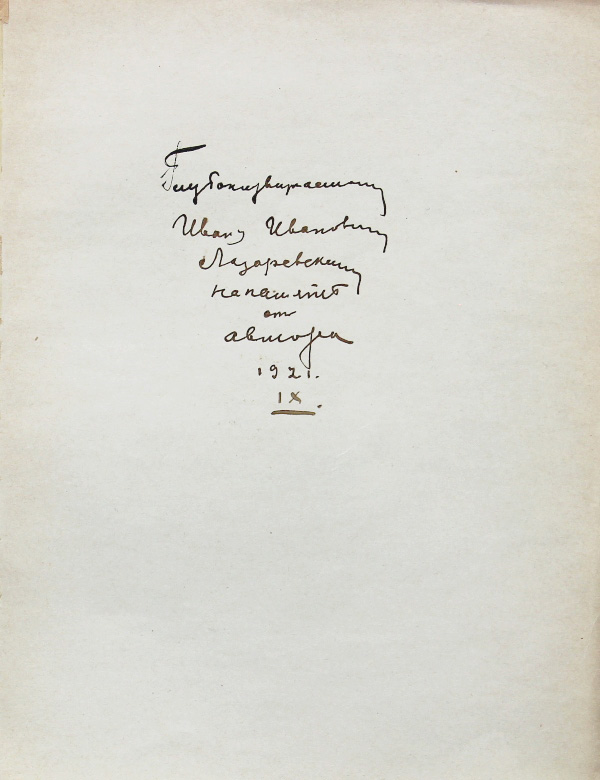 Глубокоуважаемому
Ивану Ивановичу
Лазаревскому
на память
от
автора
1921.
IX.